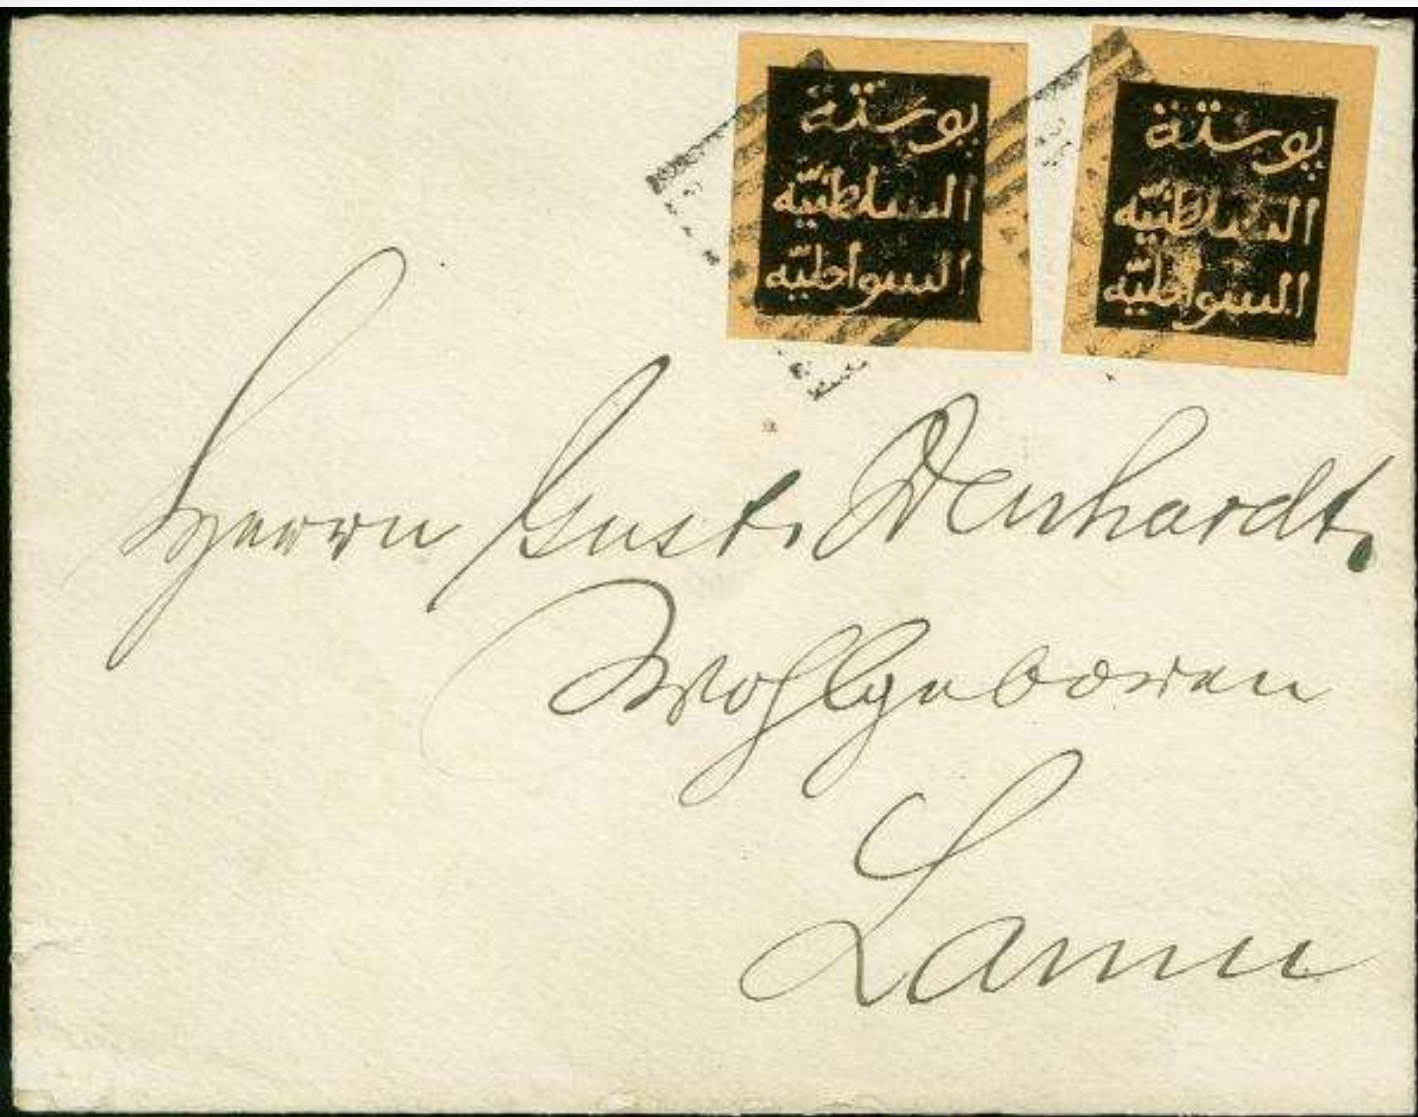 بوستة
السلطنيّه
السواحليّه
بوستة
السلطنيّه
السواحليّه
Herrn Gust. Denhardt,
Wohlgeboren
Lamu